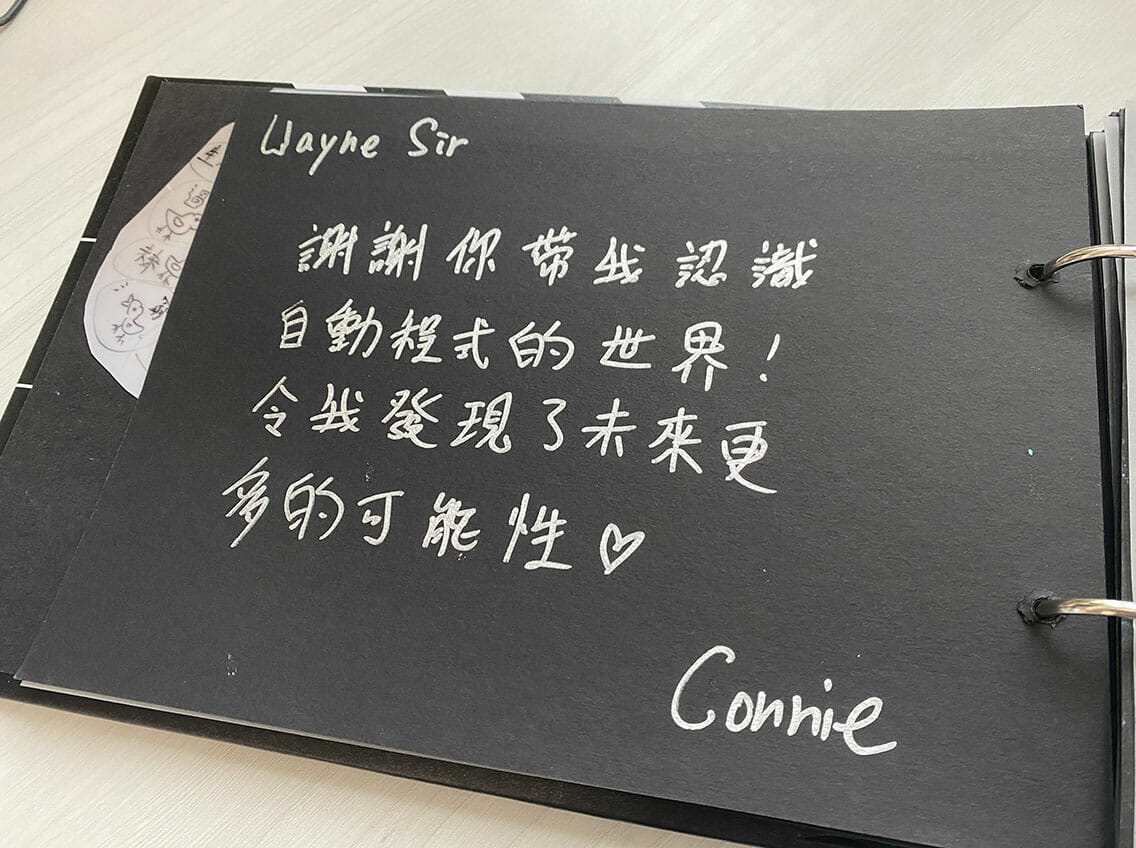 Wayne Sir
謝謝你帶我認識
自動程式的世界！
令我發現了未來更
多的可能性♡
Connie